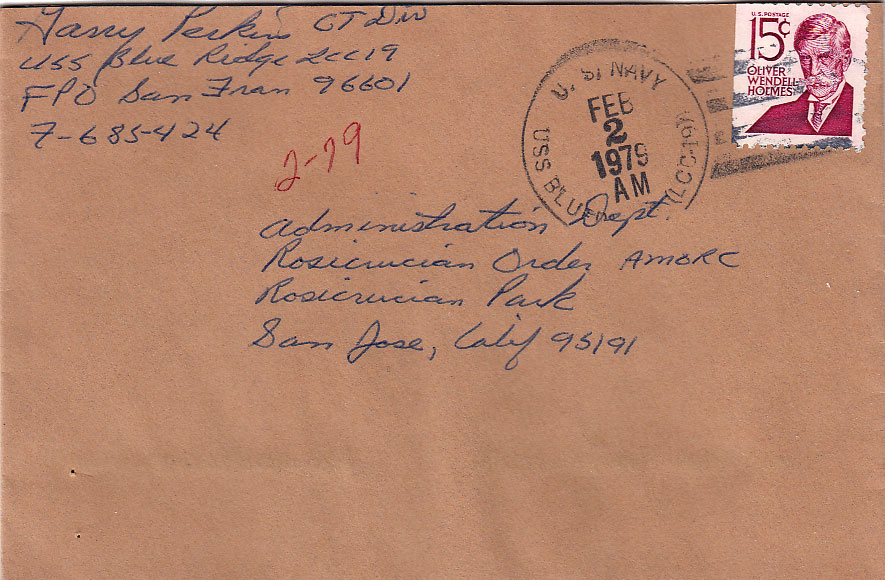 Harry Perkins CT Div
USS Blue Ridge LCC19
FPO San Fran 96601
7-685-424
2-79
U.S. POSTAGE
15¢
OLIVER
WENDELL
HOLMES
U. S. NAVY
FEB
2
1979
AM
USS BLUE (LCC-19)
Administration Dept.
Rosicrucian Order AMORC
Rosicrucian Park
San Jose, Calif 95191